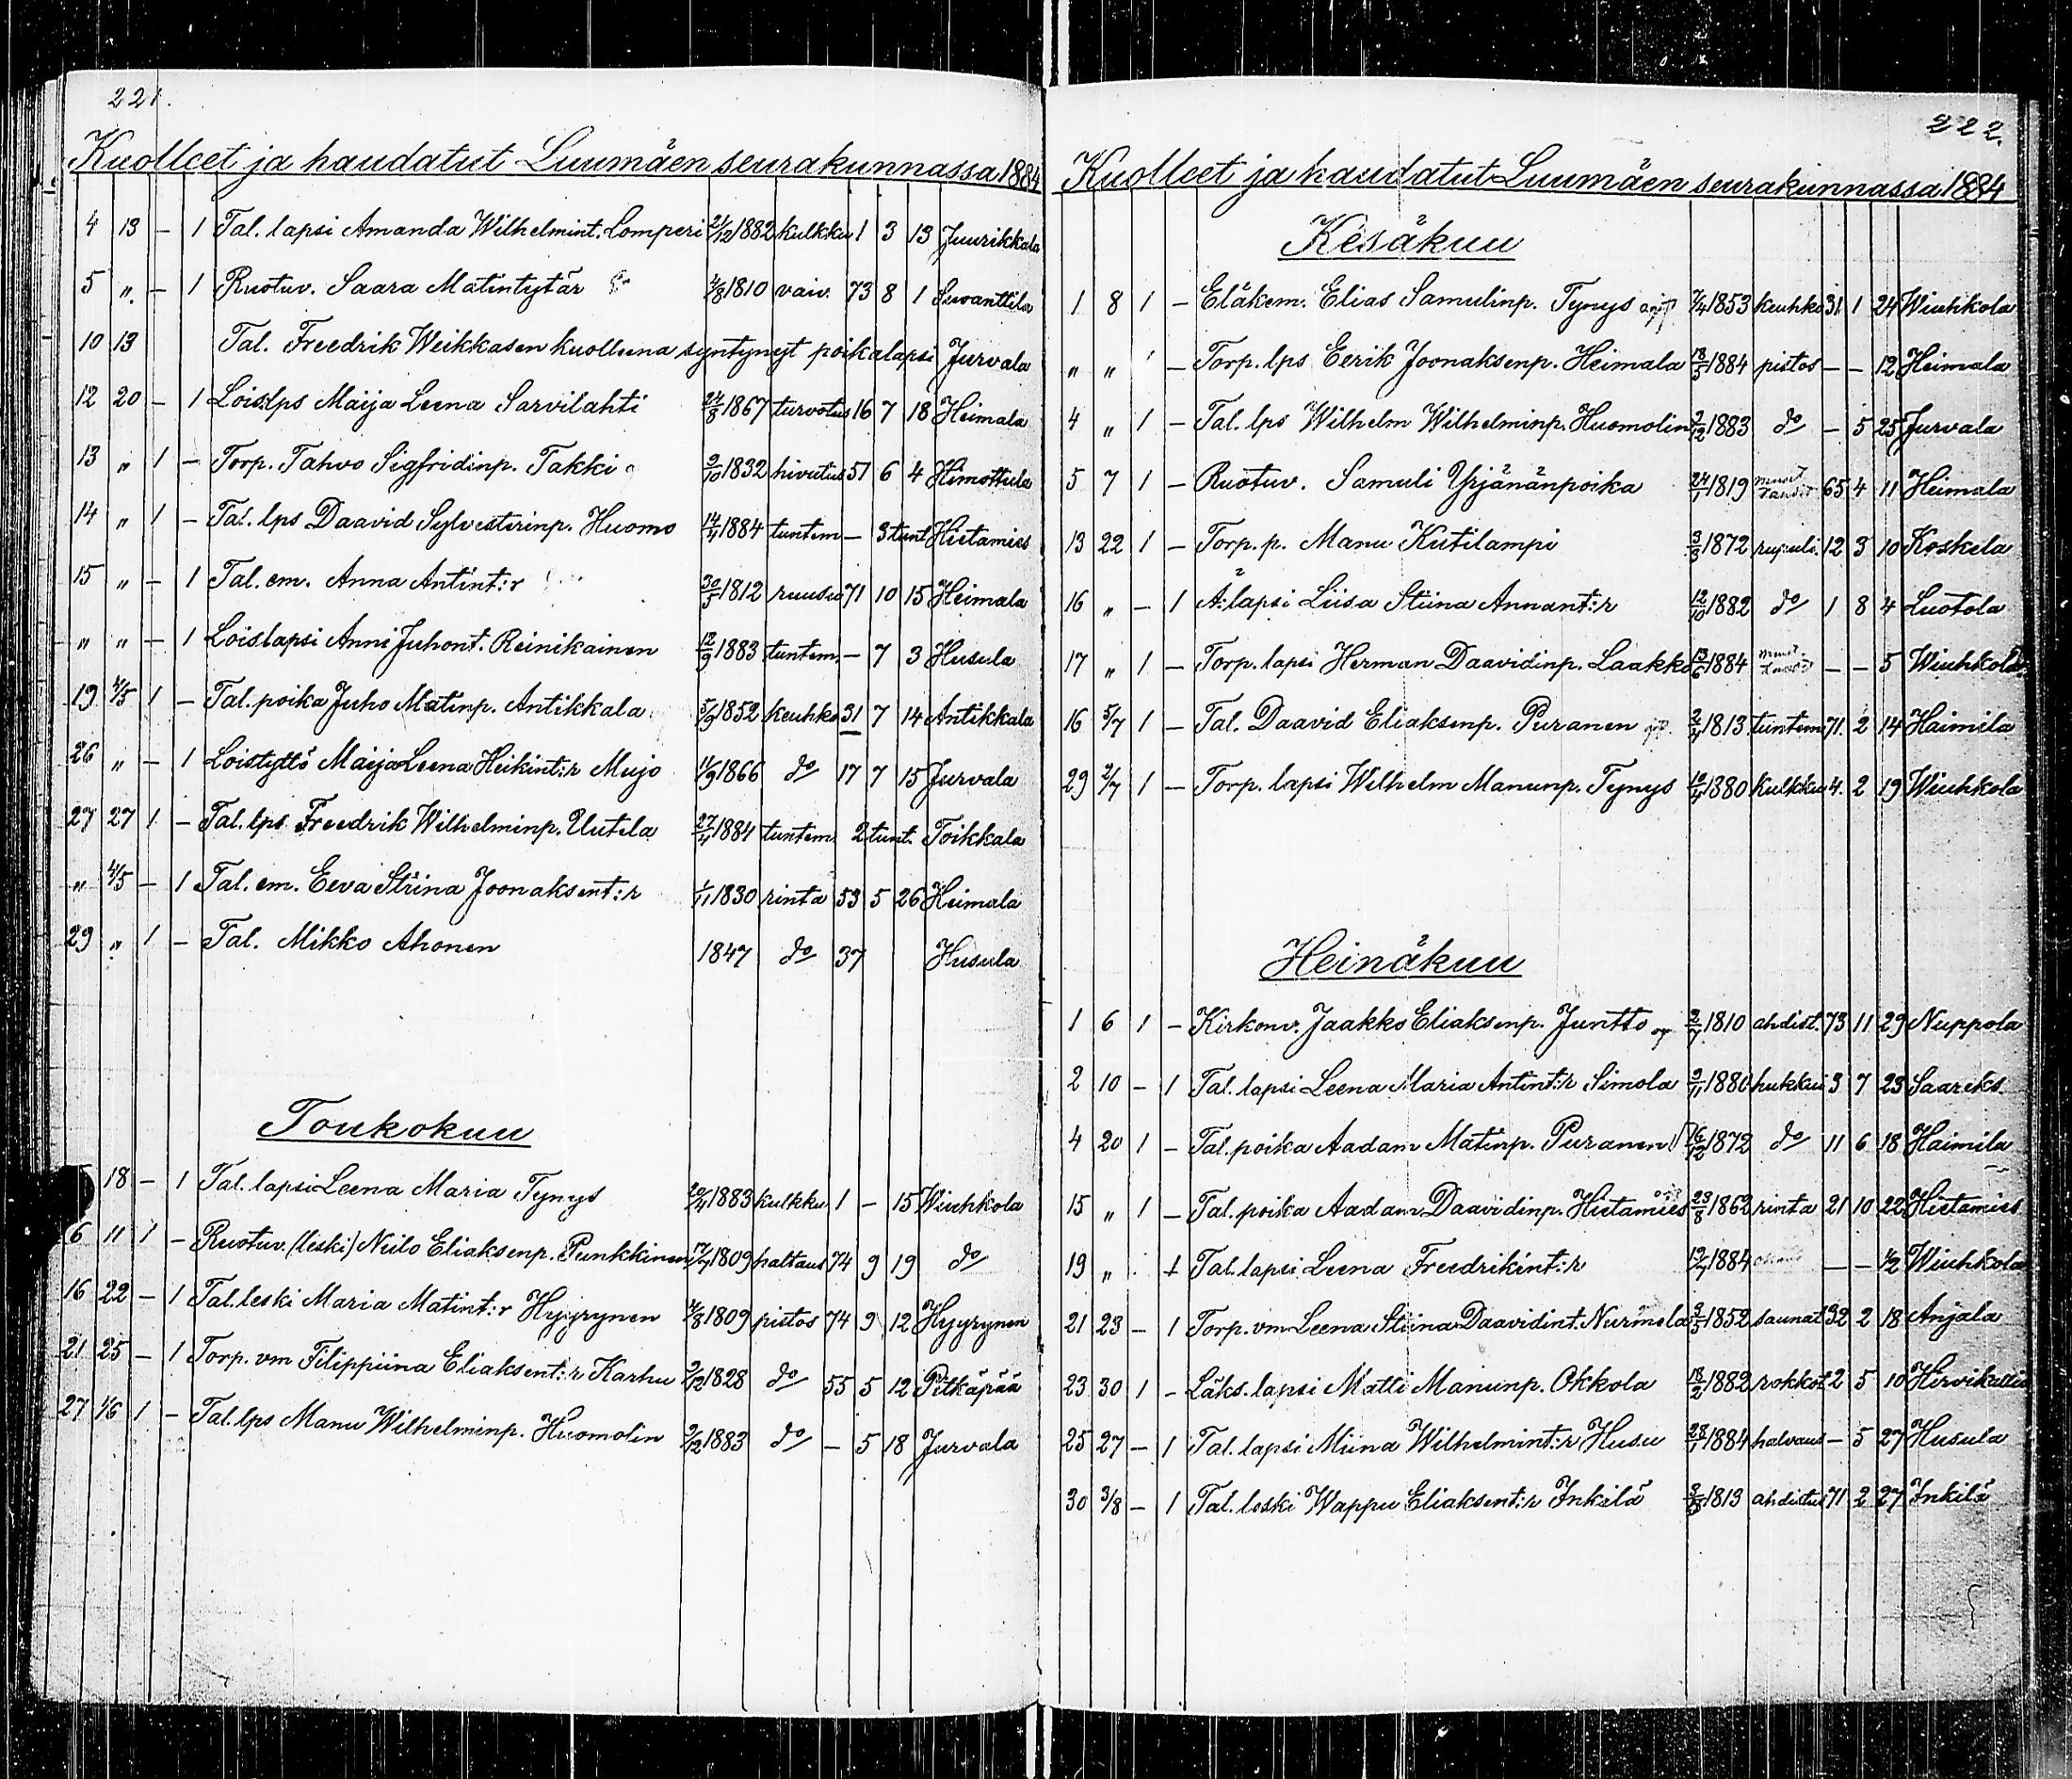 221.
Kuolleet ja haudatut Luumäen seurakunnassa 1884
4 13 — 1 Tal. lapsi Amanda Wilhelmint. Lomperi 21/12 1882 kulkku 1 3 13 Juurikkala
5 " — 1 Ruotuv. Saara Matintytär 4/8 1810 vaiv. 73 8 1 Suoanttila
10 13 Tal. Freedrik Weikkasen kuolleena syntynyt poikalapsi Jurvala
12 20 — 1 Lois.lps Maija Leena Sarvilahti 24/8 1867 turvotus 16 7 18 Heimala
13 " 1 — Torp. Tahvo Sigfridinp. Takki 9/10 1832 hivutus 51 6 4 Himottula
14 " 1 — Tal. lps Daavid Sylvesterinp. Huomo 14/4 1884 tuntem — 3 tunt Hietamies
15 " — 1 Tal. em. Anna Antint:r 30/5 1812 ruusu 71 10 15 Heimala
" " — 1 Lois.lapsi Anni Juhont. Reinikainen 12/9 1883 tuntem. — 7 3 Husula
19 4/5 1 — Tal. poika Juho Matinp. Antikkala 5/9 1852 keuhko 31 7 14 Antikkala
26 " — 1 Loistyttö Maija Leena Heikint:r Mujo 11/9 1866 do 17 7 15 Jurvala
27 27 1 — Tal. lps Freedrik Wilhelminp. Uutela 27/4 1884 tuntem. 2 tunt. Toikkala
" 4/5 — 1 Tal. em. Eeva Stiina Joonaksent:r 1/11 1830 rinta 53 5 26 Heimala
29 " 1 — Tal. Mikko Ahonen 1847 do 37 Husula
Toukokuu
18 — 1 Tal. lapsi Leena Maria Tynys 20/4 1883 kulkku 1 — 15 Wiuhkola
6 11 1 — Ruotuv. (leski) Niilo Eliaksenp. Punkkinen 17/7 1809 haltaus 74 9 19 do
16 22 — 1 Tal. leski Maria Matint:r Hyyrynen 4/8 1809 pistos 74 9 12 Hyyrynen
21 25 — 1 Torp. vm Filippiina Eliaksent:r Karhu 9/12 1828 do 55 5 12 Pitkäpää
27 1/6 1 — Tal. lps Manu Wilhelminp. Huomolin 9/12 1883 do — 5 18 Jurvala
222.
Kuolleet ja haudatut Luumäen seurakunnassa 1884
Kesäkuu
1 8 1 — Eläkem. Elias Samulinp. Tynys 7/4 1853 keuhko 31 1 24 Wiuhkola
" " 1 — Torp. lps Eerik Joonaksenp. Heimala 18/5 1884 pistos — — 12 Heimala
4 " 1 — Tal. lps Wilhelm Wilhelminp. Huomolin 9/12 1883 do — 5 25 Jurvala
5 7 1 — Ruotuv. Samuli Yrjänänpoika 24/1 1819 65 4 11 Heimala
13 22 1 — Torp. p. Manu Kutilampi 3/3 1872 rupuli 12 3 10 Koskela
16 " — 1 Ä: lapsi Liisa Stiina Annant:r 12/10 1882 do 1 8 4 Luotola
17 " 1 — Torp. lapsi Herman Daavidinp. Laakko 12/6 1884 — — 5 Wiuhkola
16 5/7 1 — Tal. Daavid Eliaksenp. Puranen 2/4 1813 tuntem 71. 2 14 Haimila
29 2/7 1 — Torp. lapsi Wilhelm Manunp. Tynys 10/4 1880 kulkku 4. 2 19 Wiuhkola
Heinäkuu
1 6 1 — Kirkonv. Jaakko Eliaksenp. Juntto 2/7 1810 ahdist. 73 11 29 Nuppola
2 10 — 1 Tal. lapsi Leena Maria Antint:r Simola 9/11 1880 hukkui 3 7 23 Saareks.
4 20 1 — Tal. poika Aadam Matinp. Puranen 16/12 1872 do 11 6 18 Haimila
15 " 1 — Tal. poika Aadam Daavidinp. Hietamies 23/8 1862 rinta 21 10 22 Hietamies
19 " 1 Tal. lapsi Leena Freedrikint:r 19/7 1884 — — 1/2 Wiuhkola
21 23 — 1 Torp. vm Leena Stiina Daavidint. Nurmela 3/5 1852 saunat 32 2 18 Anjala
23 30 1 — Läks. lapsi Matti Manunp. Okkola 18/2 1882 rokkot 2 5 10 Hirvikallio
25 27 — 1 Tal. lapsi Miina Wilhelmint:r Husu 28/1 1884 halvaus — 5 27 Husula
30 3/8 — 1 Tal. leski Wappu Eliaksent:r Inkilä 3/5 1813 ahdistus 71 2 27 Inkilä